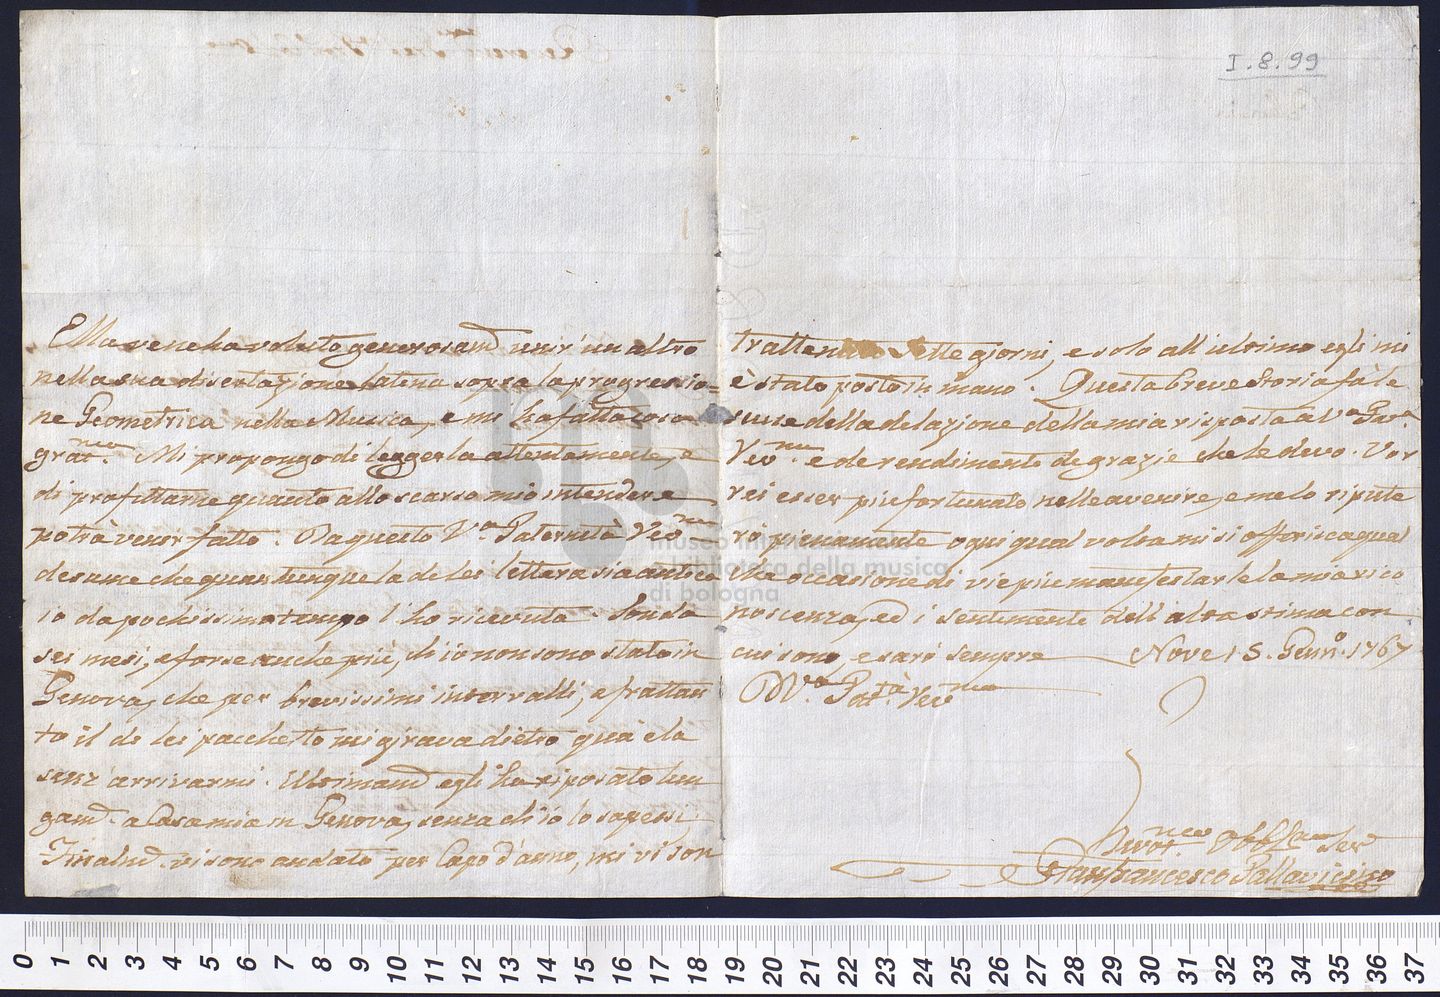 I.8.99
Ella ve ne ha voluto generosamte unir' un altro
nella sua dissertazione latina sopra la progressio-
ne Geometrica nella Musica, e mi ha fatta cosa
gratma. Mi propongo di leggerla attentamente, e
di profittarne quanto allo scarso mio intendere
potrà venir fatto. Da questo Va. Paternità Revma
desume che quantunque la di lei lettera sia antica
io da pochissimo tempo l'ho ricevuta. Sonda
sei mesi, e forse anche più, ch'io non sono stato in
Genova, che per brevissimi intervalli, e frattan
to il di lei pacchetto mi girava dietro quà e là
senz'arrivarmi. Ultimamte egli ha riposato lun
gamte a Casa mia in Genova, senza ch'io lo sapessi.
Finalmte vi sono andato per Capo d'anno, mi vi son
trattenuto sette giorni, e solo all'ultimo egli mi
è stato posto in mano. Questa breve storia fà le
scuse della dilazione della mia risposta a Va. Patà.
Revma e de rendimenti de grazie che le devo. Vor
rei esser più fortunato nell'avvenire, e me lo ripute
rò pienamente ogni qual volta mi si offerisca qual
che occasione di vie più manifestarle la mia rico
noscenza, ed i sentimenti dell'alta stima con
cui sono, e sarò sempre Nove 15. Gennro. 1767
D Va. Pattà. Revma
museo internazionale
e biblioteca della musica
di bologna
Divotmo Obblmo Ser
Gianfrancesco Pallavicino
0 1 2 3 4 5 6 7 8 9 10 11 12 13 14 15 16 17 18 19 20 21 22 23 24 25 26 27 28 29 30 31 32 33 34 35 36 37